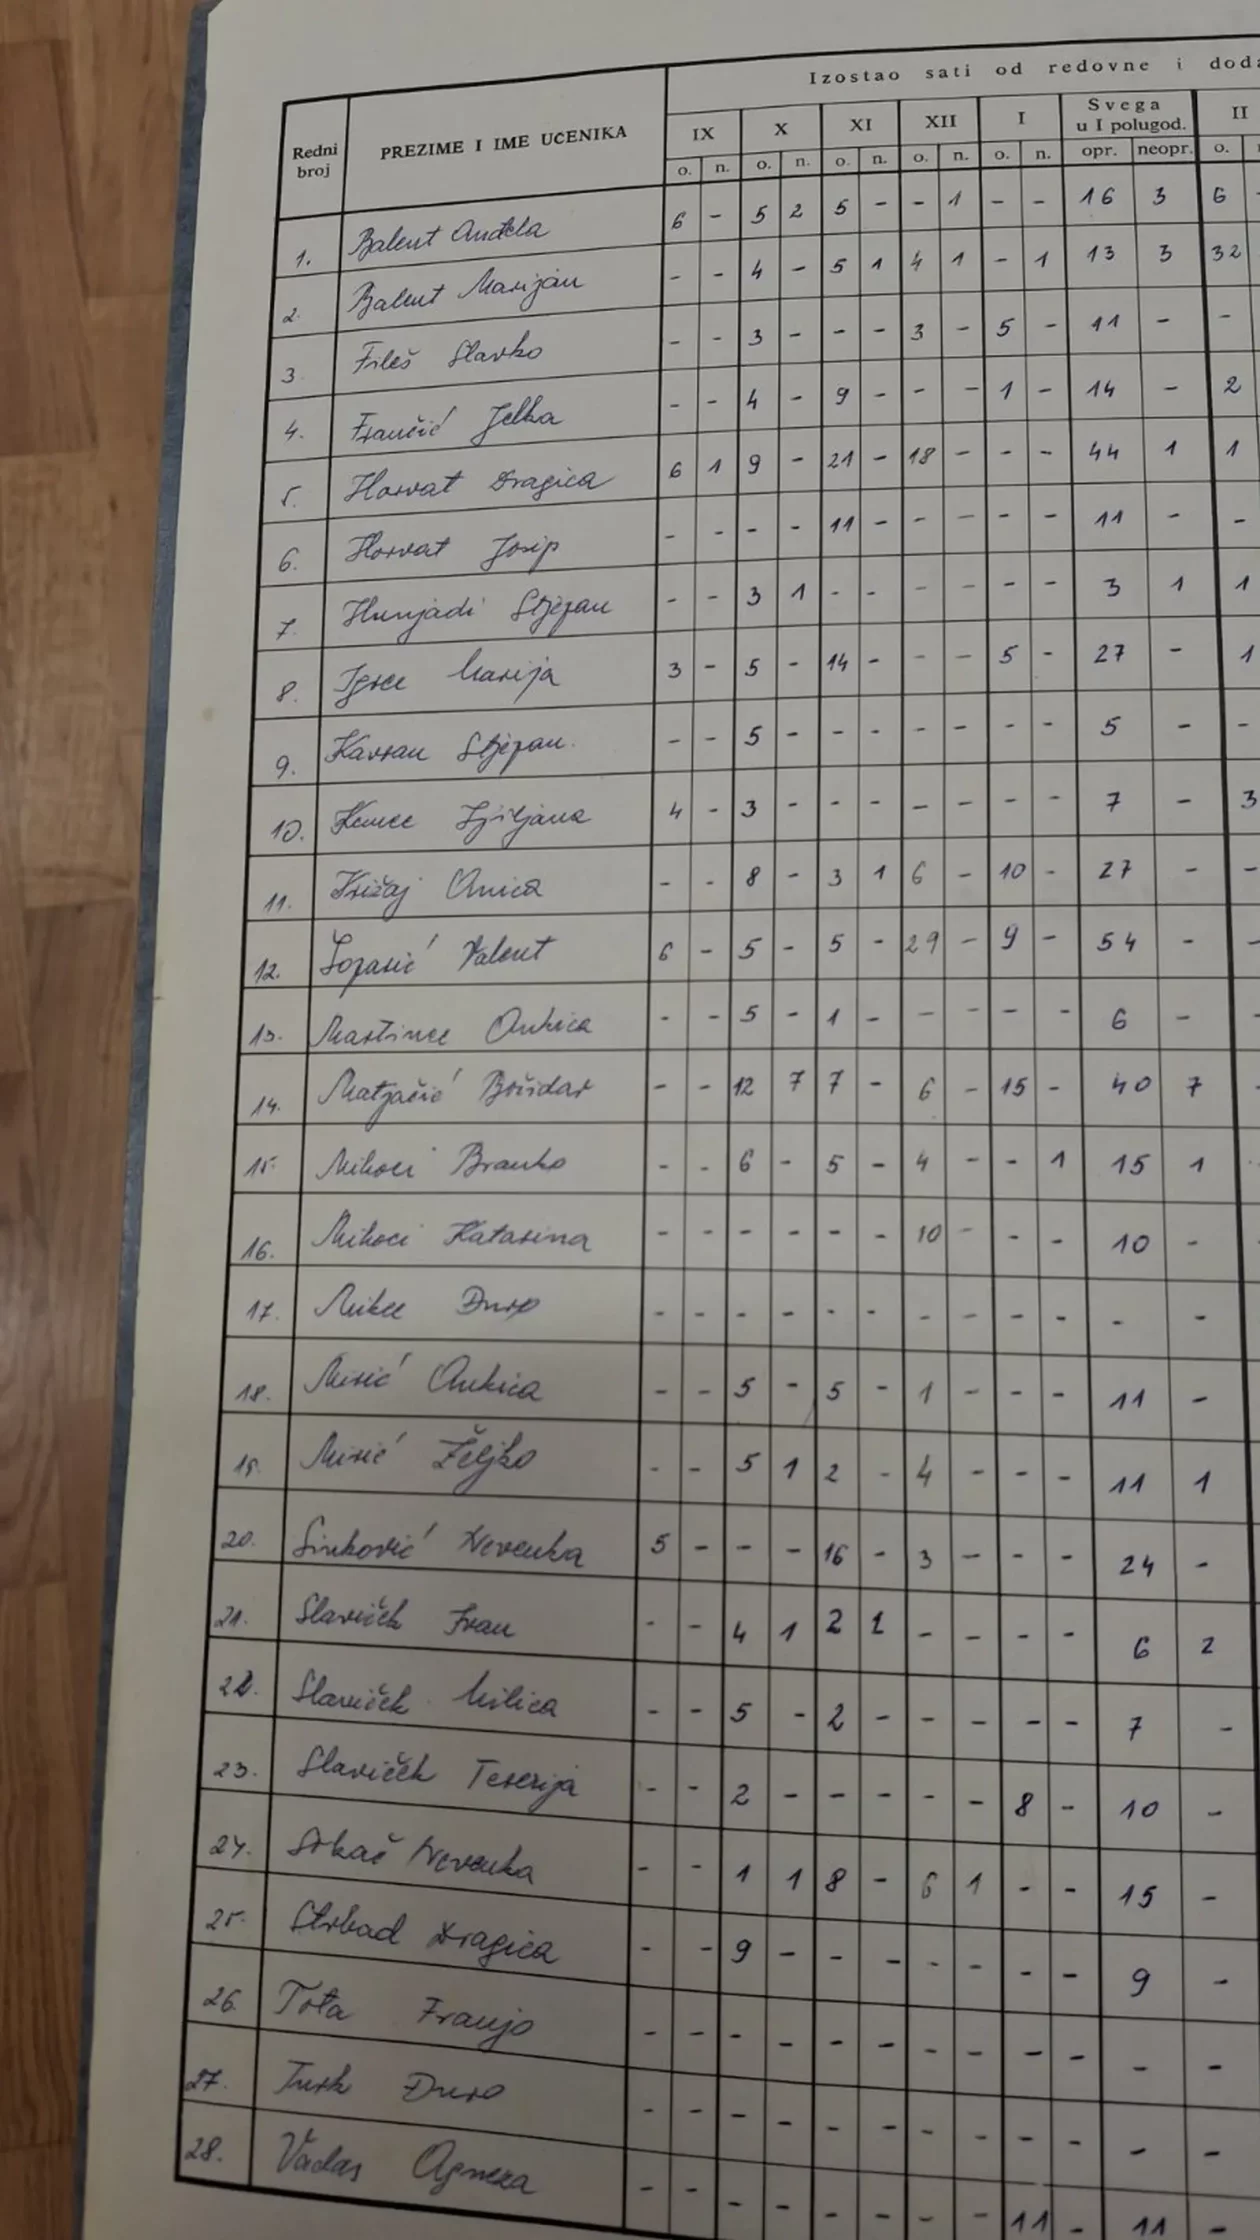 Izostao sati od redovne i doda
Redni broj PREZIME I IME UČENIKA IX X XI XII I Svega u I polugod. II
o. n. o. n. o. n. o. n. o. n. opr. neopr. o.
1. Balent Anđela 6 - 5 2 5 - - 1 - - 16 3 6
2. Balent Marijan - - 4 - 5 1 4 1 - 1 13 3 32
3 Fileš Slavko - - 3 - - - 3 - 5 - 11 - -
4. Frančić Jelka - - 4 - 9 - - - 1 - 14 - 2
5. Horvat Dragica 6 1 9 - 21 - 18 - - - 44 1 1
6. Horvat Josip - - - - 11 - - - - - 11 - -
7. Hunjadi Stjepan - - 3 1 - - - - - - 3 1 1
8. Igrec Marija 3 - 5 - 14 - - - 5 - 27 - 1
9. Kavran Stjepan. - - 5 - - - - - - - 5 - -
10. Kemec Ljiljana 4 - 3 - - - - - - - 7 - 3
11. Križaj Anica - - 8 - 3 1 6 - 10 - 27 - -
12. Loparić Valent 6 - 5 - 5 - 29 - 9 - 54 - -
13. Martinec Ankica - - 5 - 1 - - - - - 6 - -
14. Matjačić Božidar - - 12 7 7 - 6 - 15 - 40 7 -
15. Mihoci Branko - - 6 - 5 - 4 - - 1 15 1
16. Mihoci Katarina - - - - - - 10 - - - 10 -
17. Mikec Đuro - - - - - - - - - - - -
18. Mirić Ankica - - 5 - 5 - 1 - - - 11 -
19. Mirić Željko - - 5 1 2 - 4 - - - 11 1
20. Sinković Nevenka 5 - - - 16 - 3 - - - 24 -
21. Slaviček Ivan - - 4 1 2 1 - - - - 6 2
22. Slaviček Milica - - 5 - 2 - - - - - 7 -
23. Slaviček Terezija - - 2 - - - - - 8 - 10 -
24. Srkač Nevenka - - 1 1 8 - 6 1 - - 15 -
25. Strbad Dragica - - 9 - - - - - - - 9 -
26. Tota Franjo - - - - - - - - - - - -
27. Turk Đuro - - - - - - - - - - - -
28. Vadas Agneza - - - - - - - - 11 - 11 -